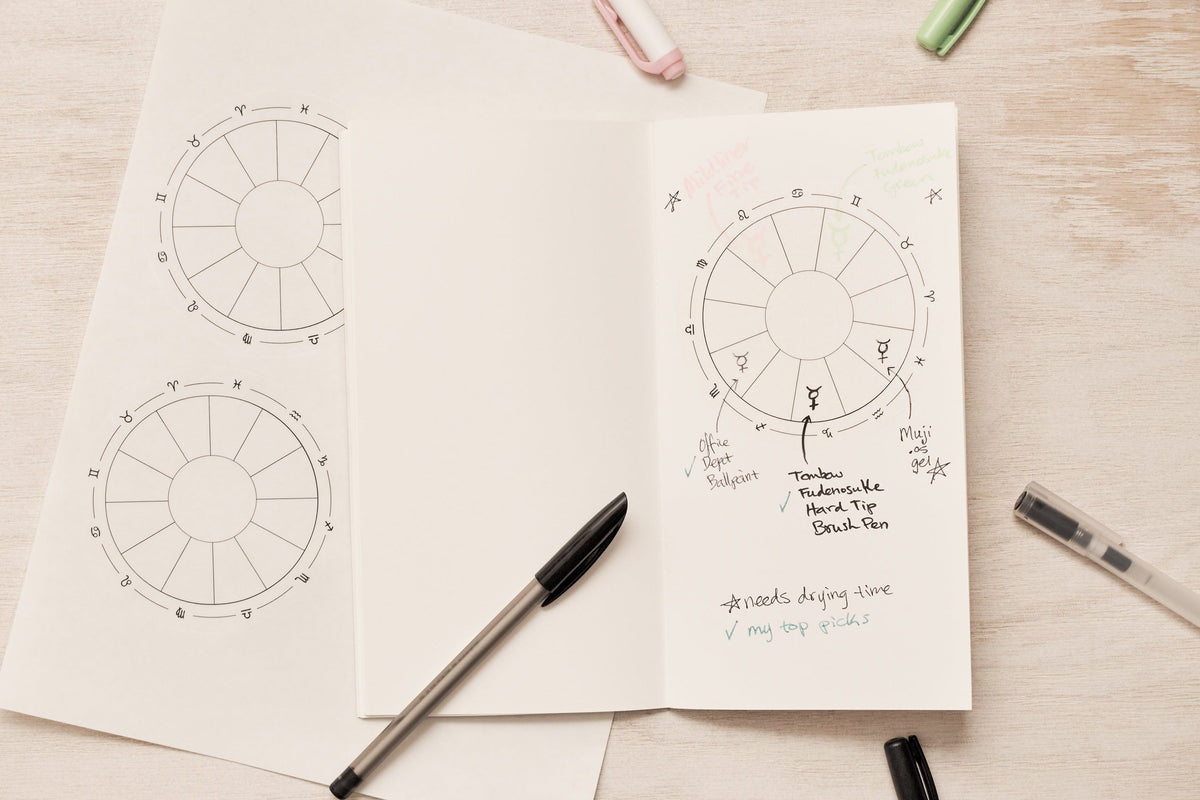 Mildliner
Fine
Tip
Tombow
Fudenosuke
Green
Office
Depot
Ballpoint
Tombow
Fudenosuke
Hard Tip
Brush Pen
Muji
.05
gel ☆
☆ needs drying time
✓ my top picks